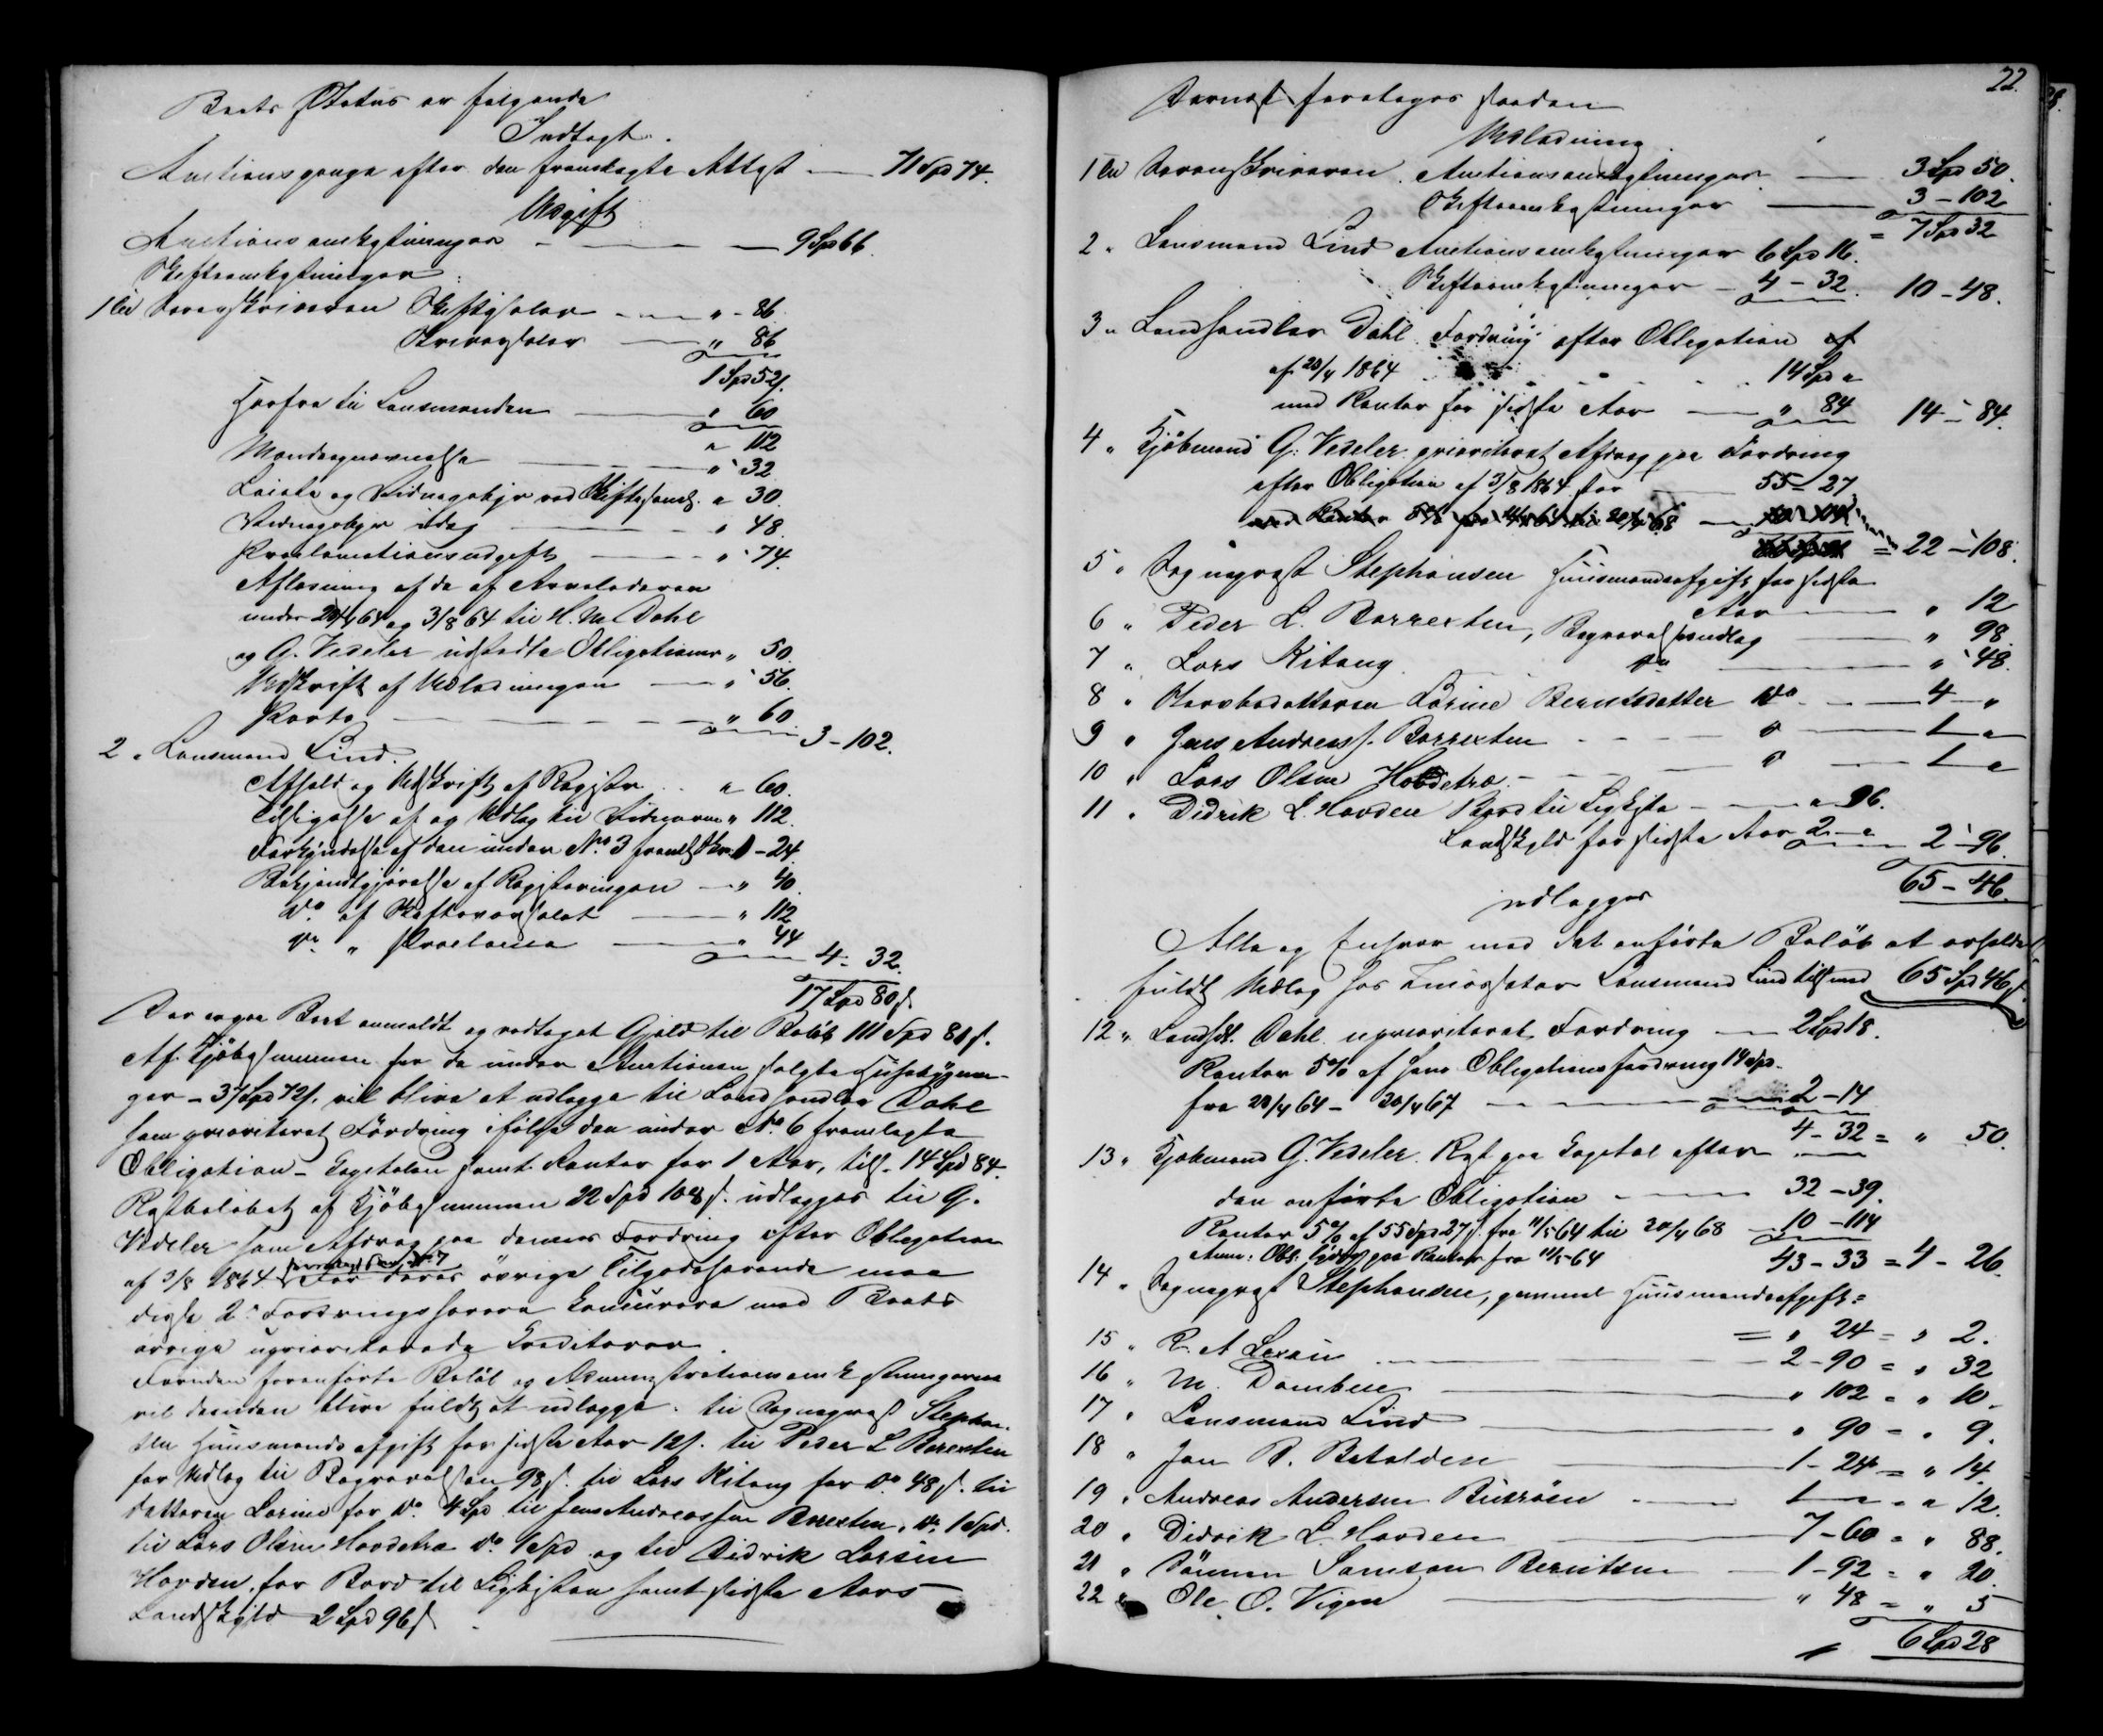 Boets Status er følgende
Indtægt.
Auctionspenge efter den fremlagte Attest — 71 Spd 74.
Udgift
Auctionsomkostninger — 9 Spd 66.
Skifteomkostninger:
1 til Sorenskriveren Skiftesalær — " - 86.
Skriversalær — " 86
1 Spd 52 s.
Herfra til Lensmanden — " 60
" 112
Mandsopnævnelse — " 32
Leiete og Vidnegebyr ved Skiftesaml. " 30.
Vidnegebyr idag — " 48.
Proclamationsudgift — " 74.
Aflæsning af de af Arveladeren
under 20/4 64 og 3/8 64 til H. M. Dahl
og G. Vedeler udstedte Obligationer " 50.
Udskrift af Udlodningen — " 56.
Porto — " 60
3 - 102.
2 " Lensmand Lind.
Afhold og Udskrift af Registr. " 60.
Tilsigelse af og Udlæg til Vidnerne " 112.
Forkyndelse af den under No 3 freml. Skr. 1 - 24.
Bekjendtgjørelse af Registeringen — " 40.
Do af Skiftevæsenet — " 112
Do " Proclama — " 44
4 - 32.
17 Spd 80 s.
Der er paa Boet anmeldt og vedtaget Gjæld til Beløb 111 Spd 80 s.
Af Kjøbesummen for de under Auctionen solgte Husebygnin-
ger - 37 Spd 72 s. vil blive at udlægge til Landhandler Dahl
som prioriteret Fordring ifølge den under No 6 fremlagte
Obligation - Capitalen samt Renter for 1 Aar, tils. 14 Spd 84.
Restbeløbet af Kjøbesummen 22 Spd 108 s. udlægges til G.
Vedeler som Afdrag paa dennes Fordring efter Obligation
af 3/8 1864 fremlagt som No 7 For deres øvrige Tilgodehavende maa
disse 2de Fordringshavere concurrere med Boets
øvrige uprioriterede Creditorer.
Foruden foranførte Beløb og Administrationsomkostningerne
vil desuden blive fuldt at udlægge: til Sogneprest Stephan-
sen Huusmandsafgift for sidste Aar 12 s. til Peder L Borrexten
for Udlæg til Begravelsen 98 s. til Lars Kitang for Do 48 s. til
datteren Lorine for Do 4 Spd til Jens Andreassen Borrexten, Do 1 Spd.
til Lars Olsen Hovdetræ Do 1 Spd og til Didrik Larsen
Hovden, for Bord til Ligkisten samt sidste Aars
Landskyld 2 Spd 96 s.
22.
Dernæst foretoges saadan
Udlodning
1 til Sorenskriveren Auctionsomkostninger — 3 Spd 50.
Skifteomkostninger — 3 - 102
= 7 Spd 32
2 " Lensmand Lind Auctionsomkostninger 6 Spd 16.
Skifteomkostninger — 4 - 32. 10 - 48.
3 " Landhandler Dahl Fordring efter Obligation af
af 20/4 1864 14 Spd "
med Renter for sidste Aar — " 84 14 - 84.
4 " Kjøbmand G. Vedeler prioriteret Afdrag paa Fordring
efter Obligation af 3/8 1864 stor — 55 - 27
med Renter 5% fra 11/5 64 til 20/4 68
= 22 - 108.
5 " Sogneprest Stephansen Huusmandsafgift for sidste
Aar — " 12
6 " Peder L. Borrexten, Begravelsesudlæg — " 98.
7 " Lars Kitang Do — " 48.
8 " Stervbodatteren Lorine Berntsdatter Do — 4 - "
9 " Jens Andreass. Borrexten — " — 1 - "
10 " Lars Olsen Hovdetræ — " — 1 - "
11 " Didrik L. Hovden Bord til Ligkiste — " 96.
Landskyld for sidste Aar 2 - " 2 - 96.
65 - 46.
udlægges
Alle og Enhver med det anførte Beløb at erholde
fuldt Udlæg hos Incassator Lensmand Lind tils. med 65 Spd 46 s.
12 " Landh. Dahl uprioriteret Fordring — 2 Spd 18.
Renter 5% af hans Obligationsfordring 14 Spd.
fra 20/4 64 - 20/4 67 — 2 - 14
4 - 32 = " 50.
13 " Kjøbmand G. Vedeler. Rest paa Capital efter
den anførte Obligation — 32 - 39.
Renter 5% af 55 Spd 27 s. fra 11/5 64 til 20/4 68 — 10 - 114
Anm: Obl. lyder paa Renter fra 11/5 64 43 - 33 = 4 - 26.
14 " Sogneprest Stephansen, gammel Huusmandsafgift =
= " 24 = " 2.
15 " R. A Lexau — 2 - 90 = " 32
16 " M. Domben — " 102 = " 10.
17 " Lensmand Lind — " 90 = " 9.
18 " Jan R. Botolden — 1 - 24 = " 14.
19 " Andreas Andersen Buxröen — 1 - " = " 12.
20 " Didrik L. Hovden — 7 - 60 = " 88.
21 " Sönnen Samson Berntsen — 1 - 92 = " 20.
22 " Ole O. Vigen — " 48 = " 5
6 Spd 28